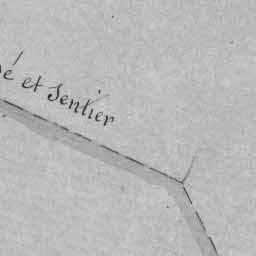 é et Sentier